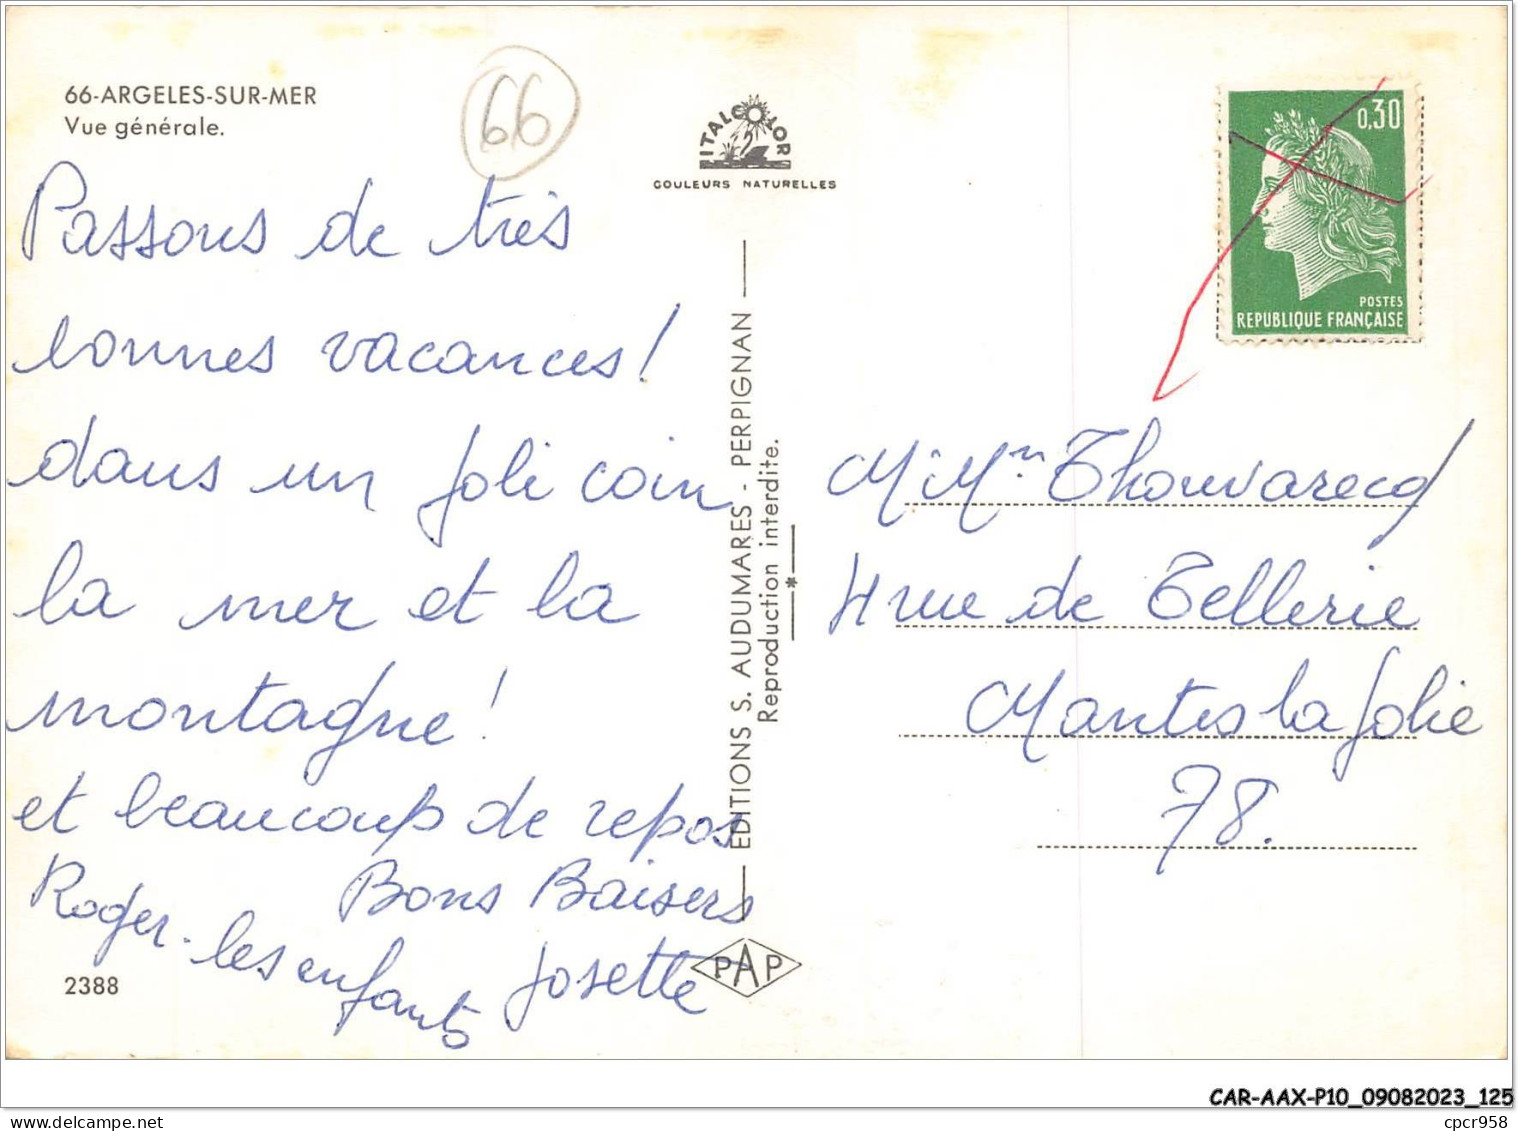 66-ARGELES-SUR-MER
Vue générale.
66
ITALCOLOR
COULEURS NATURELLES
0,30
POSTES
REPUBLIQUE FRANÇAISE
Passons de très
bonnes vacances!
dans un joli coin
la mer et la
montagne!
et beaucoup de repos
Bons Baisers
Roger. les enfants Josette
2388
EDITIONS S. AUDUMARES - PERPIGNAN
Reproduction interdite.
PAP
M Mm Thouvarecq
4 rue de Tellerie
Mantes la Jolie
78.
CAR-AAX-P10_09082023_125
cpcr958